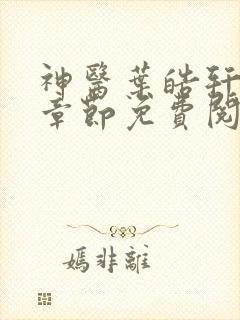 神醫葉皓軒
章節免費閱
嫣非離